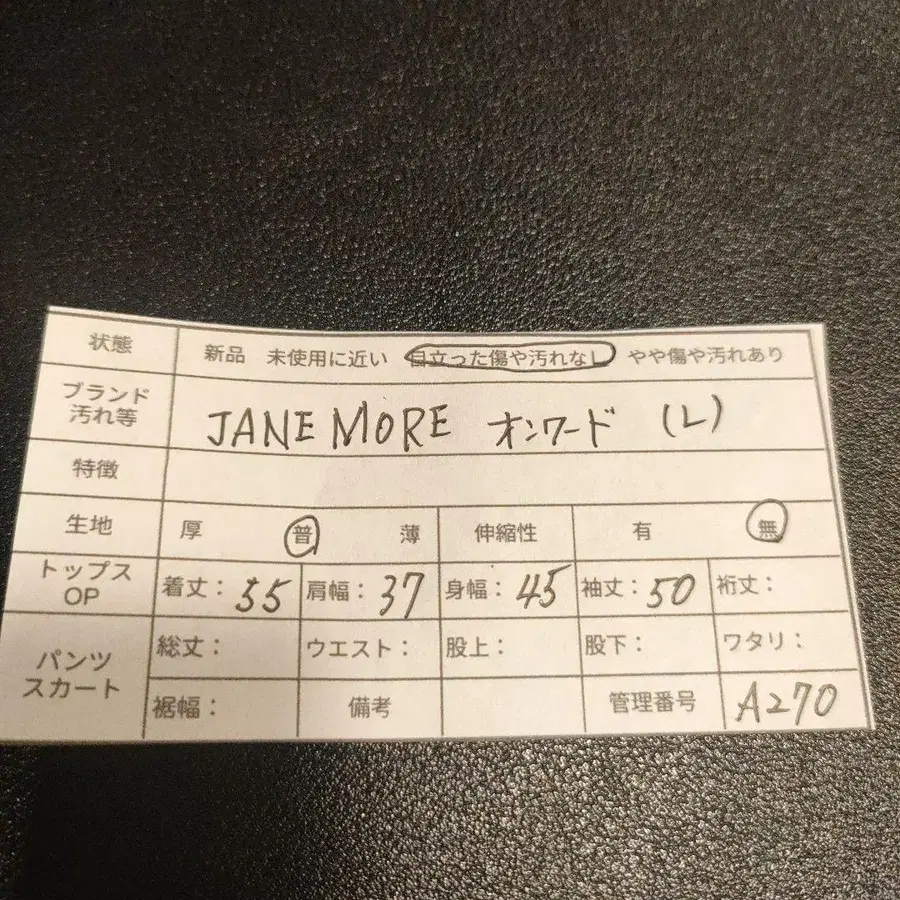 状態 新品 未使用に近い 目立った傷や汚れなし やや傷や汚れあり
ブランド
汚れ等 JANE MORE オンワード (L)
特徴
生地 厚 普 薄 伸縮性 有 無
トップス
OP 着丈: 55 肩幅: 37 身幅: 45 袖丈: 50 裄丈:
パンツ
スカート 総丈: ウエスト: 股上: 股下: ワタリ:
裾幅: 備考 管理番号 A270